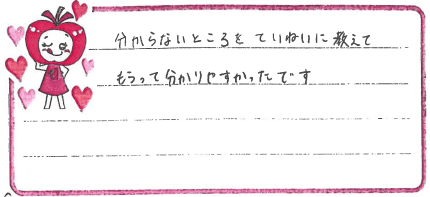 分からないところをていねいに教えて
もらって分かりやすかったです